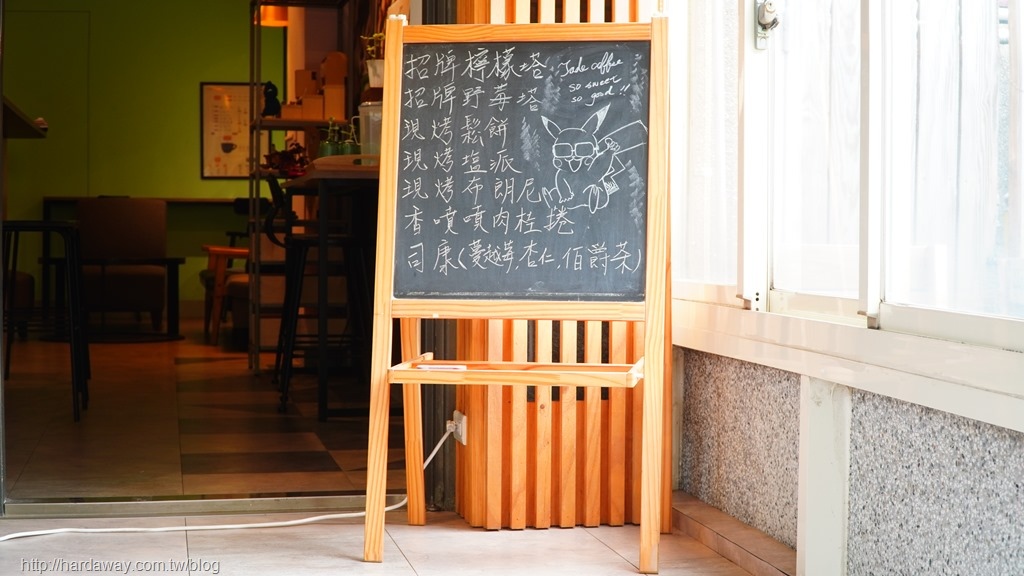 招牌檸檬塔
招牌野莓塔
現烤鬆餅
現烤塩派
現烤布朗尼
香噴噴肉桂捲
司康(蔓越莓,杏仁,佰爵茶)
Jade coffee
so sweet
so good!!
http://hardaway.com.tw/blog